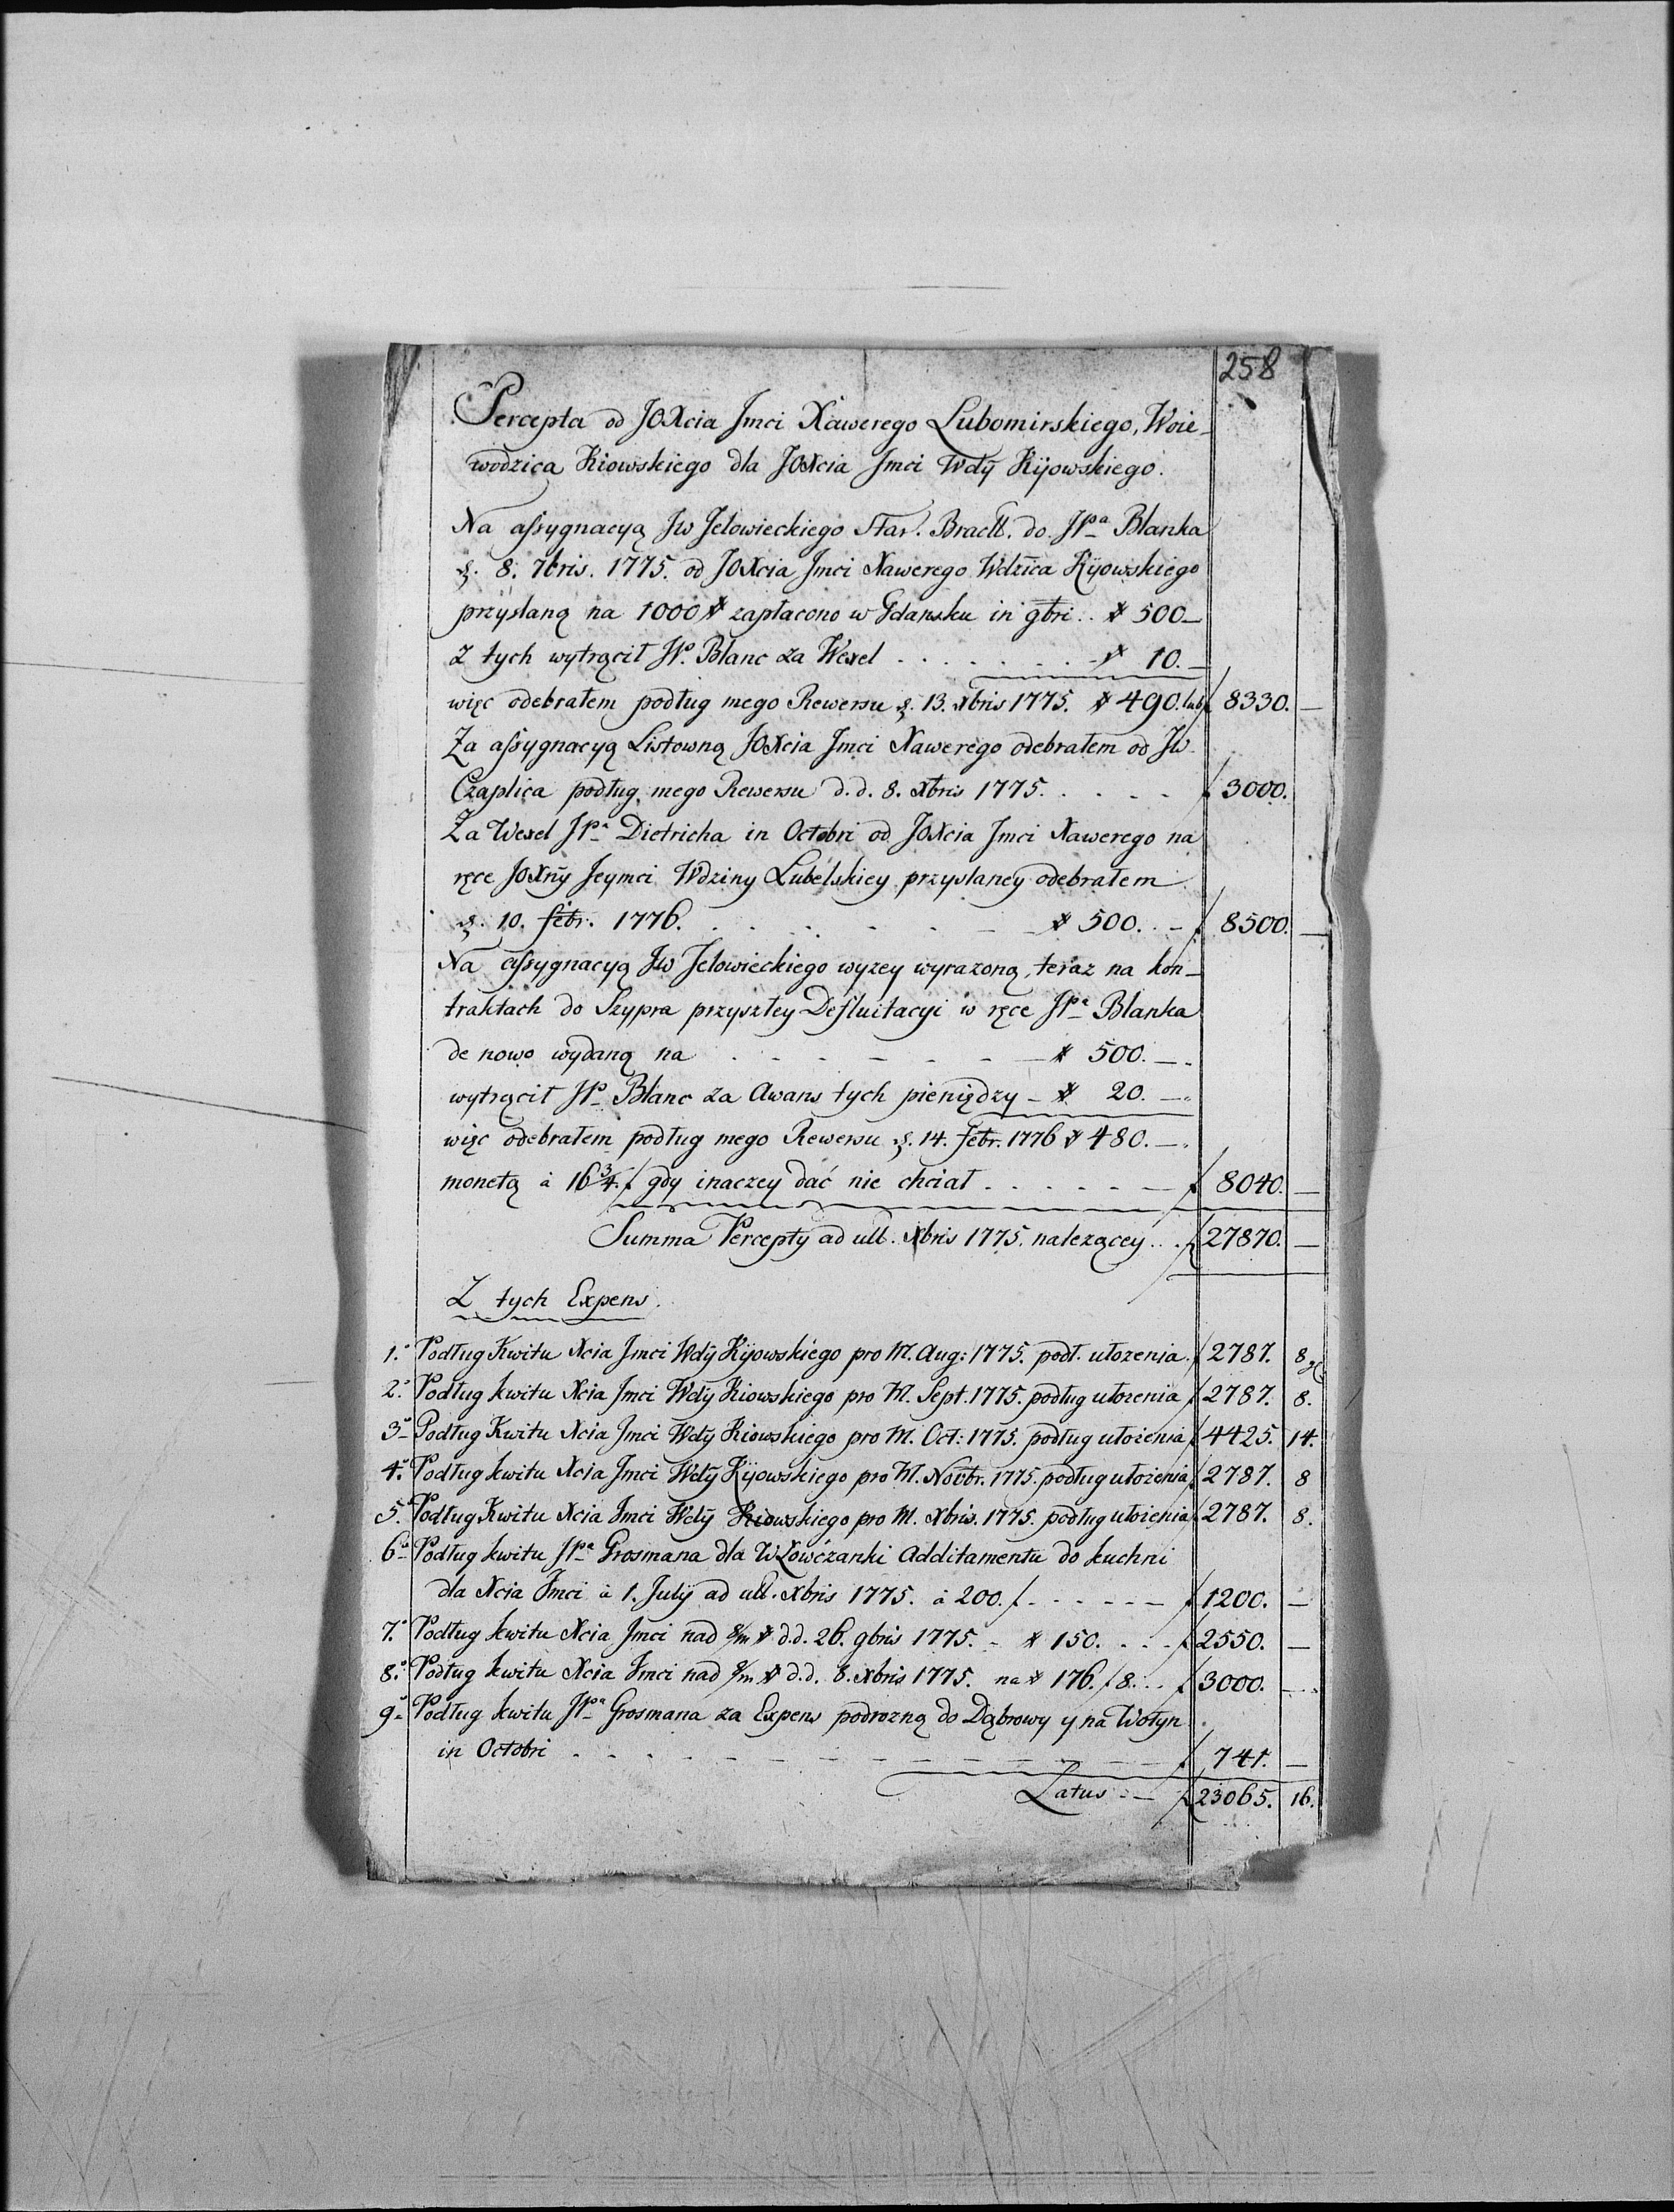 258
Percepta od JOXcia Jmci Xawerego Lubomirskiego, Woie-
wodzica Kiowskiego dla JOXcia Jmci Wdy Kijowskiego.
Na assygnacyą Jw Jełowieckiego Star. Bractt. do JPa Blanka
8. 7bris. 1775. od JOXcia Jmci Xawerego Wdzica Kijowskiego
przysłaną na 1000 # zapłacono w Gdansku in 9bri .. # 500 —
Z tych wytrącił JP. Blanc za Wexel . . . . . . . # 10. —
więc odebrałem podług mego Rewersu 13. xbris 1775. # 490. lub f 8330. —
Za assygnacyą Listowną JOXcia Jmci Xawerego odebrałem od Jw
Czaplica podług mego Rewersu d.d. 8. xbris 1775. . . . . f 3000.
Za Wexel JPa Dietricha in Octobri od JOXcia Jmci Xawerego na
ręce JOXny Jeymci Wdziny Lubelskiey przysłaney odebrałem
10. febr. 1776. . . . . . . — # 500. . — f 8500. —
Na assygnacyą Jw Jełowieckiego wyzey wyrazoną, teraz na kon-
traktach do Szypra przyszłey Defluitacyi w ręce JPa Blanka
de nowo wydaną na . . . . . . — # 500. — .
wytrącił JP Blanc za Awans tych pieniędzy — # 20. — .
więc odebrałem podług mego Rewersu 14. febr. 1776 # 480. — .
monetą à 16 3/4. f gdy inaczey dać nie chciał . . . . . . — f 8040. —
Summa Percepty ad ult. Xbris 1775. nalezącey . . . f 27870. —
Z tych Expens.
1.o Podług Kwitu Xcia Jmci Wdy Kijowskiego pro M. Aug: 1775. podł. ułozenia . f 2787. 8 gr
2.o Podług kwitu Xcia Jmci Wdy Kiowskiego pro M. Sept. 1775. podług ułozenia f 2787. 8.
3o Podług Kwitu Xcia Jmci Wdy Kiowskiego pro M. Oct: 1775. podług ułożenia f 4425. 14.
4.o Podług kwitu Xcia Jmci Wdy Kijowskiego pro M. Novbr. 1775. podług ułożenia f 2787. 8
5. Podług Kwitu Xcia Jmci Wdy Kiowskiego pro M. Xbris. 1775. podług ułożenia f 2787. 8.
6o Podług kwitu JPa Grosmana dla W Łowczanki Additamentu do kuchni
dla Xcia Jmci à 1. July ad ult. xbris 1775. à 200. f . . . . . . — f 1200. —
7.o Podług kwitu Xcia Jmci nad 8/m # d.d. 26. 9bris 1775. — # 150. . . . f 2550. —
8.o Podług kwitu Xcia Jmci nad 8/m # d.d. 8. xbris 1775. na # 176. f 8. . . f 3000. —
9o Podług kwitu JPa Grosmana za Expens podrozną do Dąbrowy y na Wołyn
in Octobri . . . . . . . . . . . — f 741. —
Latus . . — f 23065. 16.